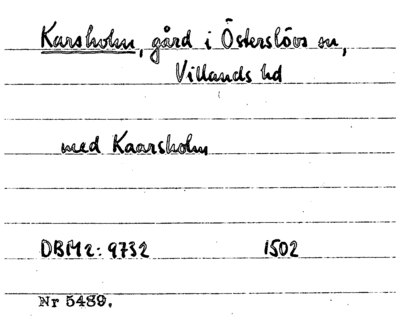 Karsholm, gård i Österslövs sn,
Villands hd
med Kaarsholm
DBM2: 9732 1502
Nr 5489.